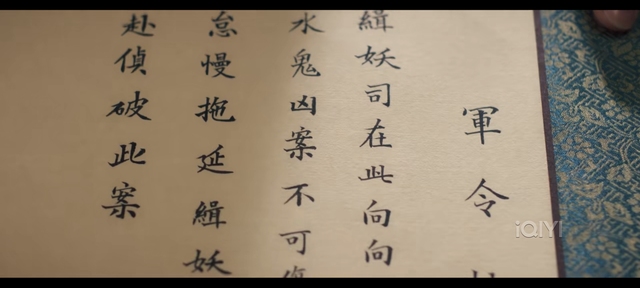 軍令
緝妖司在此向向
水鬼凶案不可
怠慢拖延緝妖
赴偵破此案
iQIYI